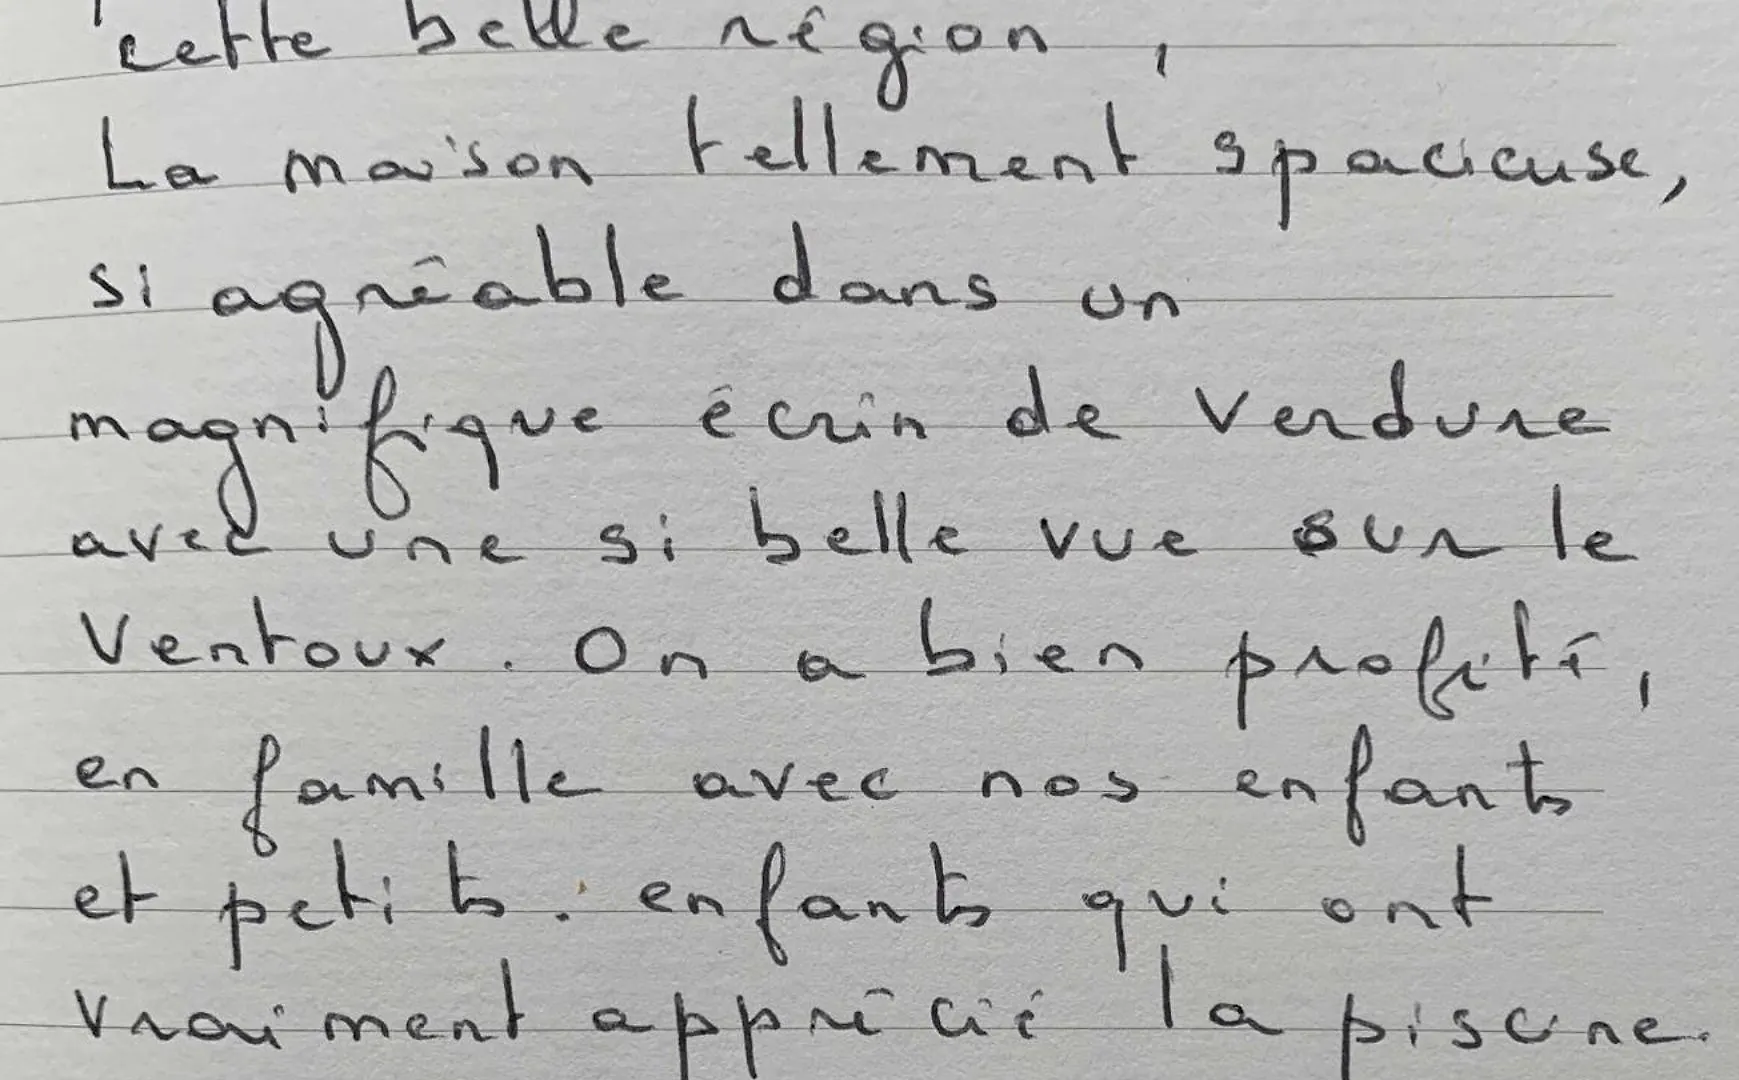 cette belle région,
La maison tellement spacieuse,
si agréable dans un
magnifique écrin de verdure
avec une si belle vue sur le
Ventoux. On a bien profité,
en famille avec nos enfants
et petits. enfants qui ont
vraiment apprécié la piscine.